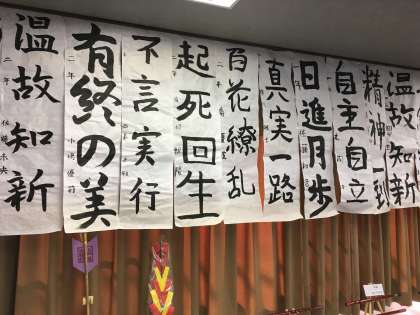 温故知新
二年
有終の美
二年
不言実行
起死回生
百花繚乱
真実一路
日進月歩
自主自立
精神一到
温故知新